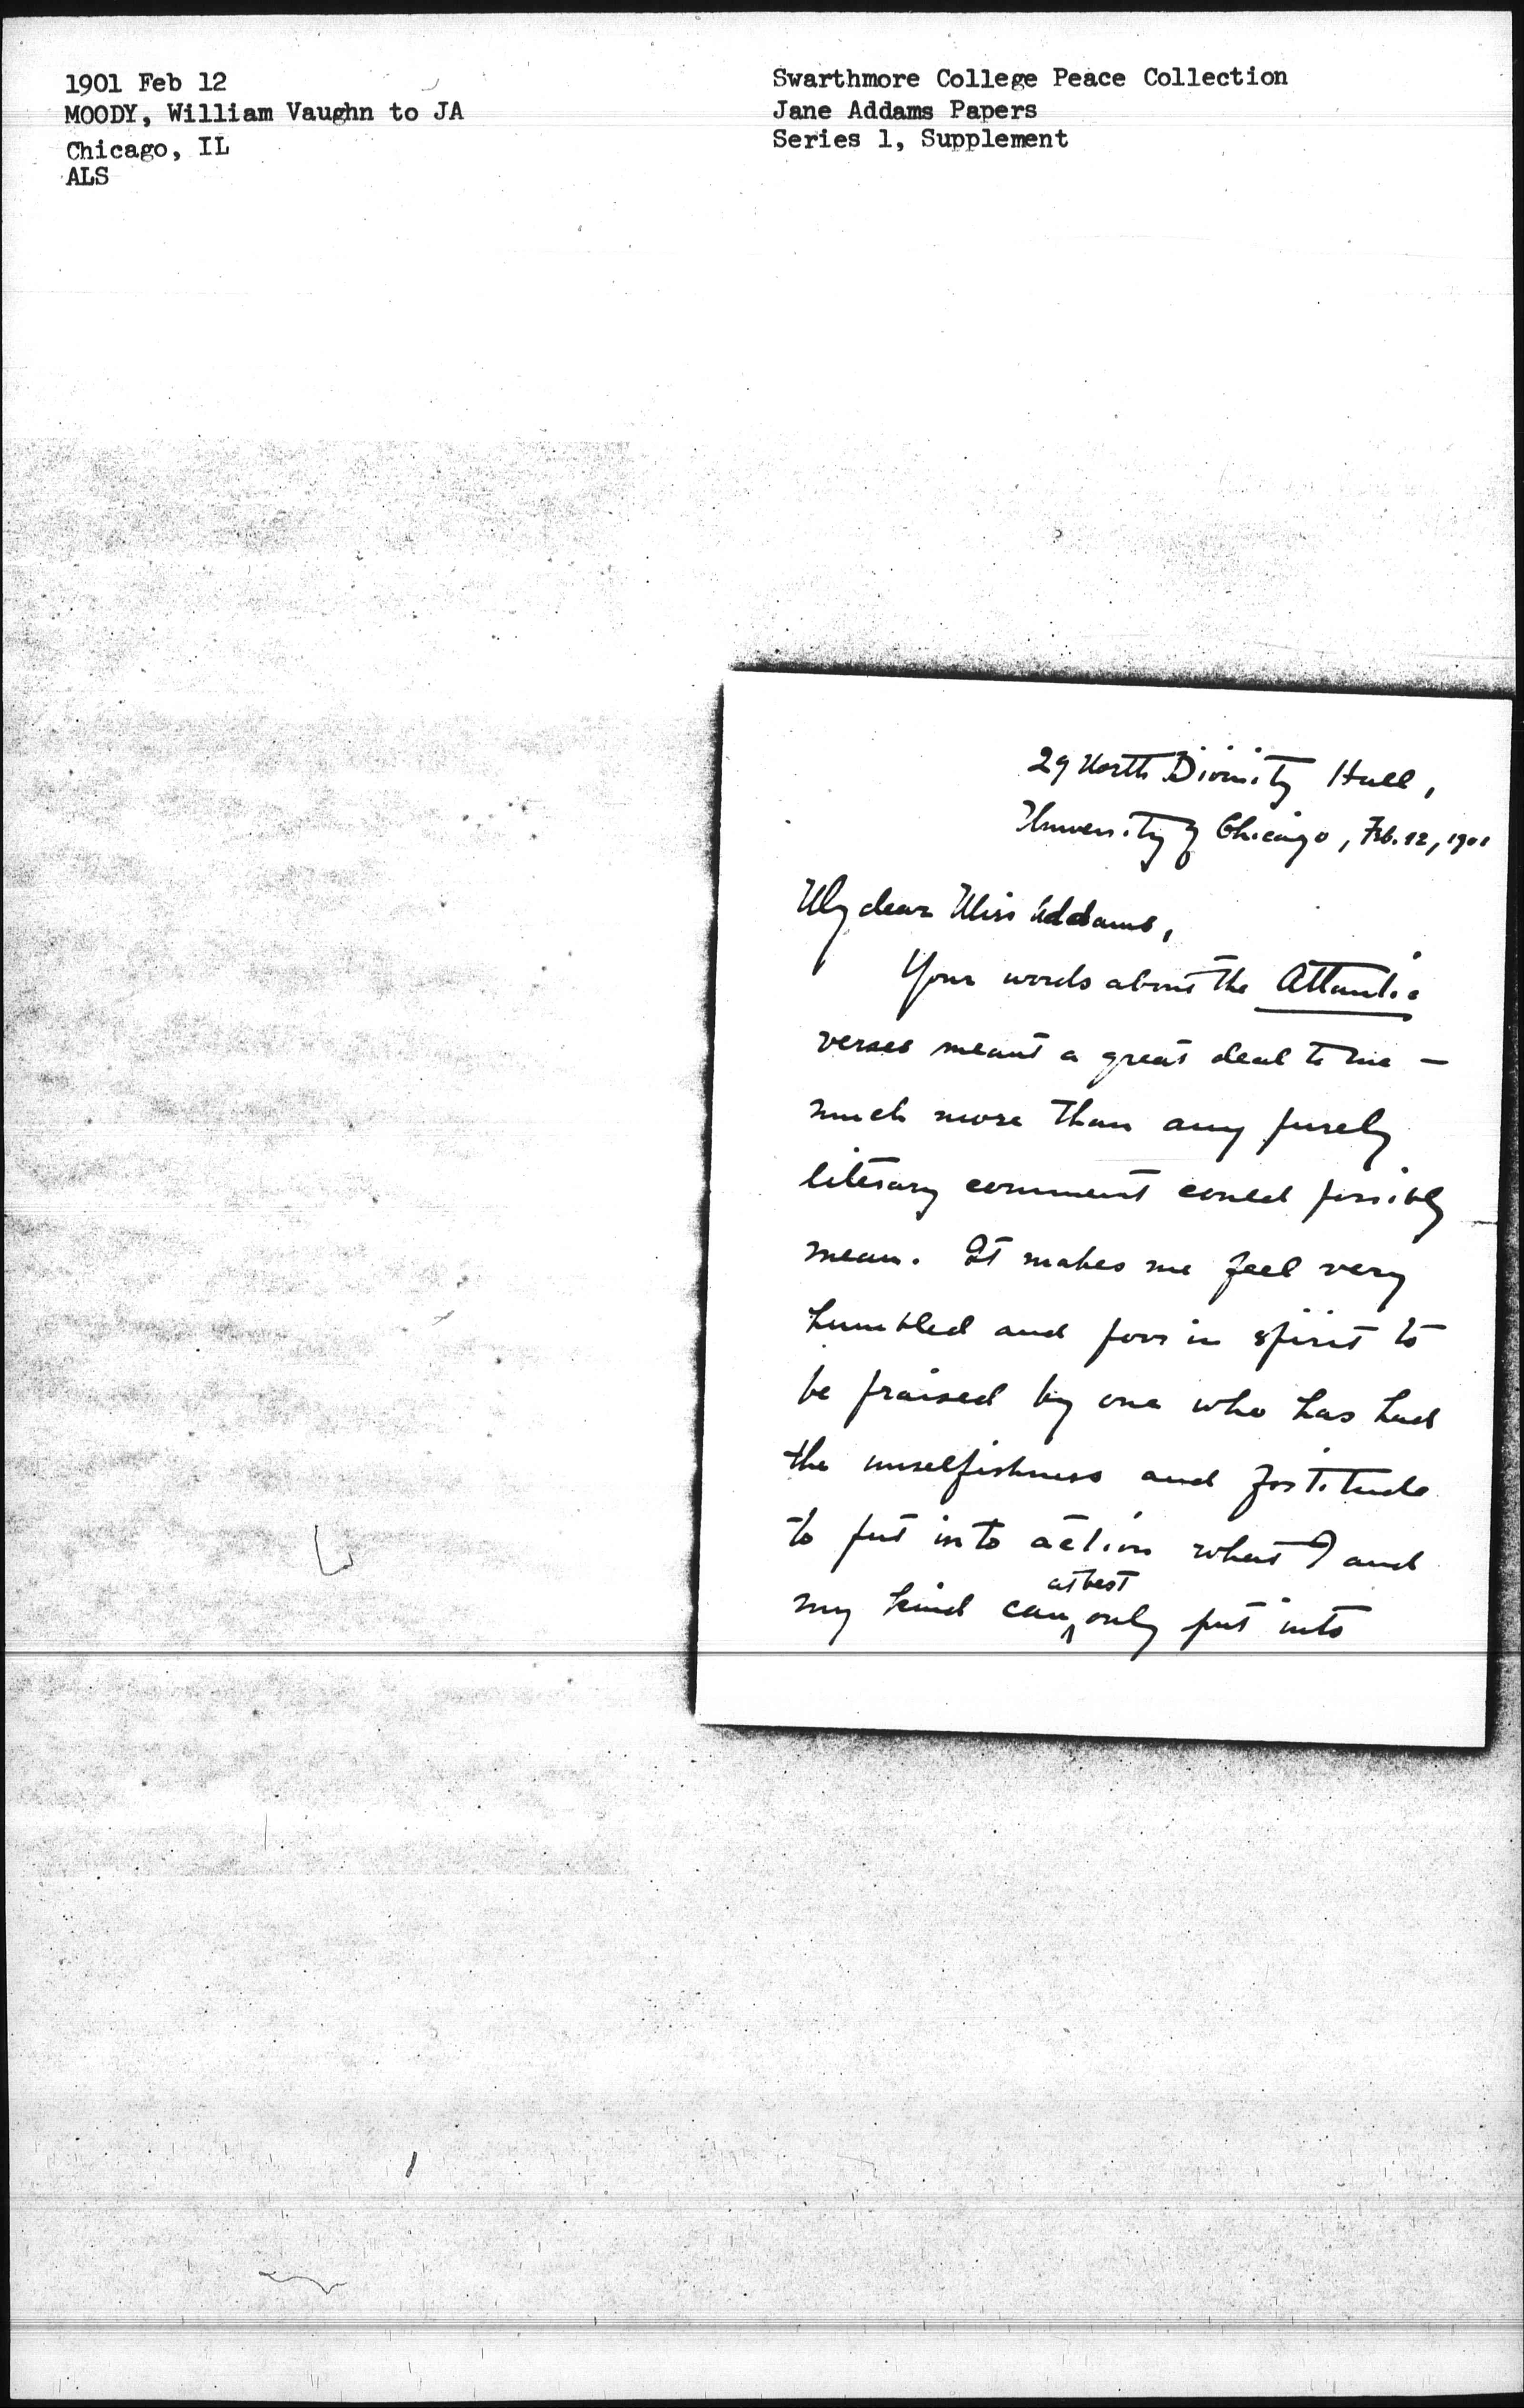 1901 Feb 12
MOODY, William Vaughn to JA
Chicago, IL
ALS
Swarthmore College Peace Collection
Jane Addams Papers
Series 1, Supplement
29 North Divinity Hall,
University of Chicago, Feb. 12, 1901
My dear Miss Addams,
Your words about the Atlantic
verses meant a great deal to me —
much more than any purely
literary comment could possibly
mean. It makes me feel very
humbled and poor in spirit to
be praised by one who has had
the unselfishness and fortitude
to put into action what I and
my kind can at best only put into